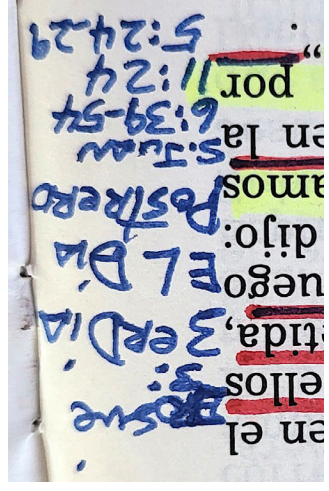 en el
ellos
etida,
uego
dijo:
amos
en la
por
3ER DIA
EL DIA
POSTRERO
S. JUAN
6:39-54
11:24
5:24.29